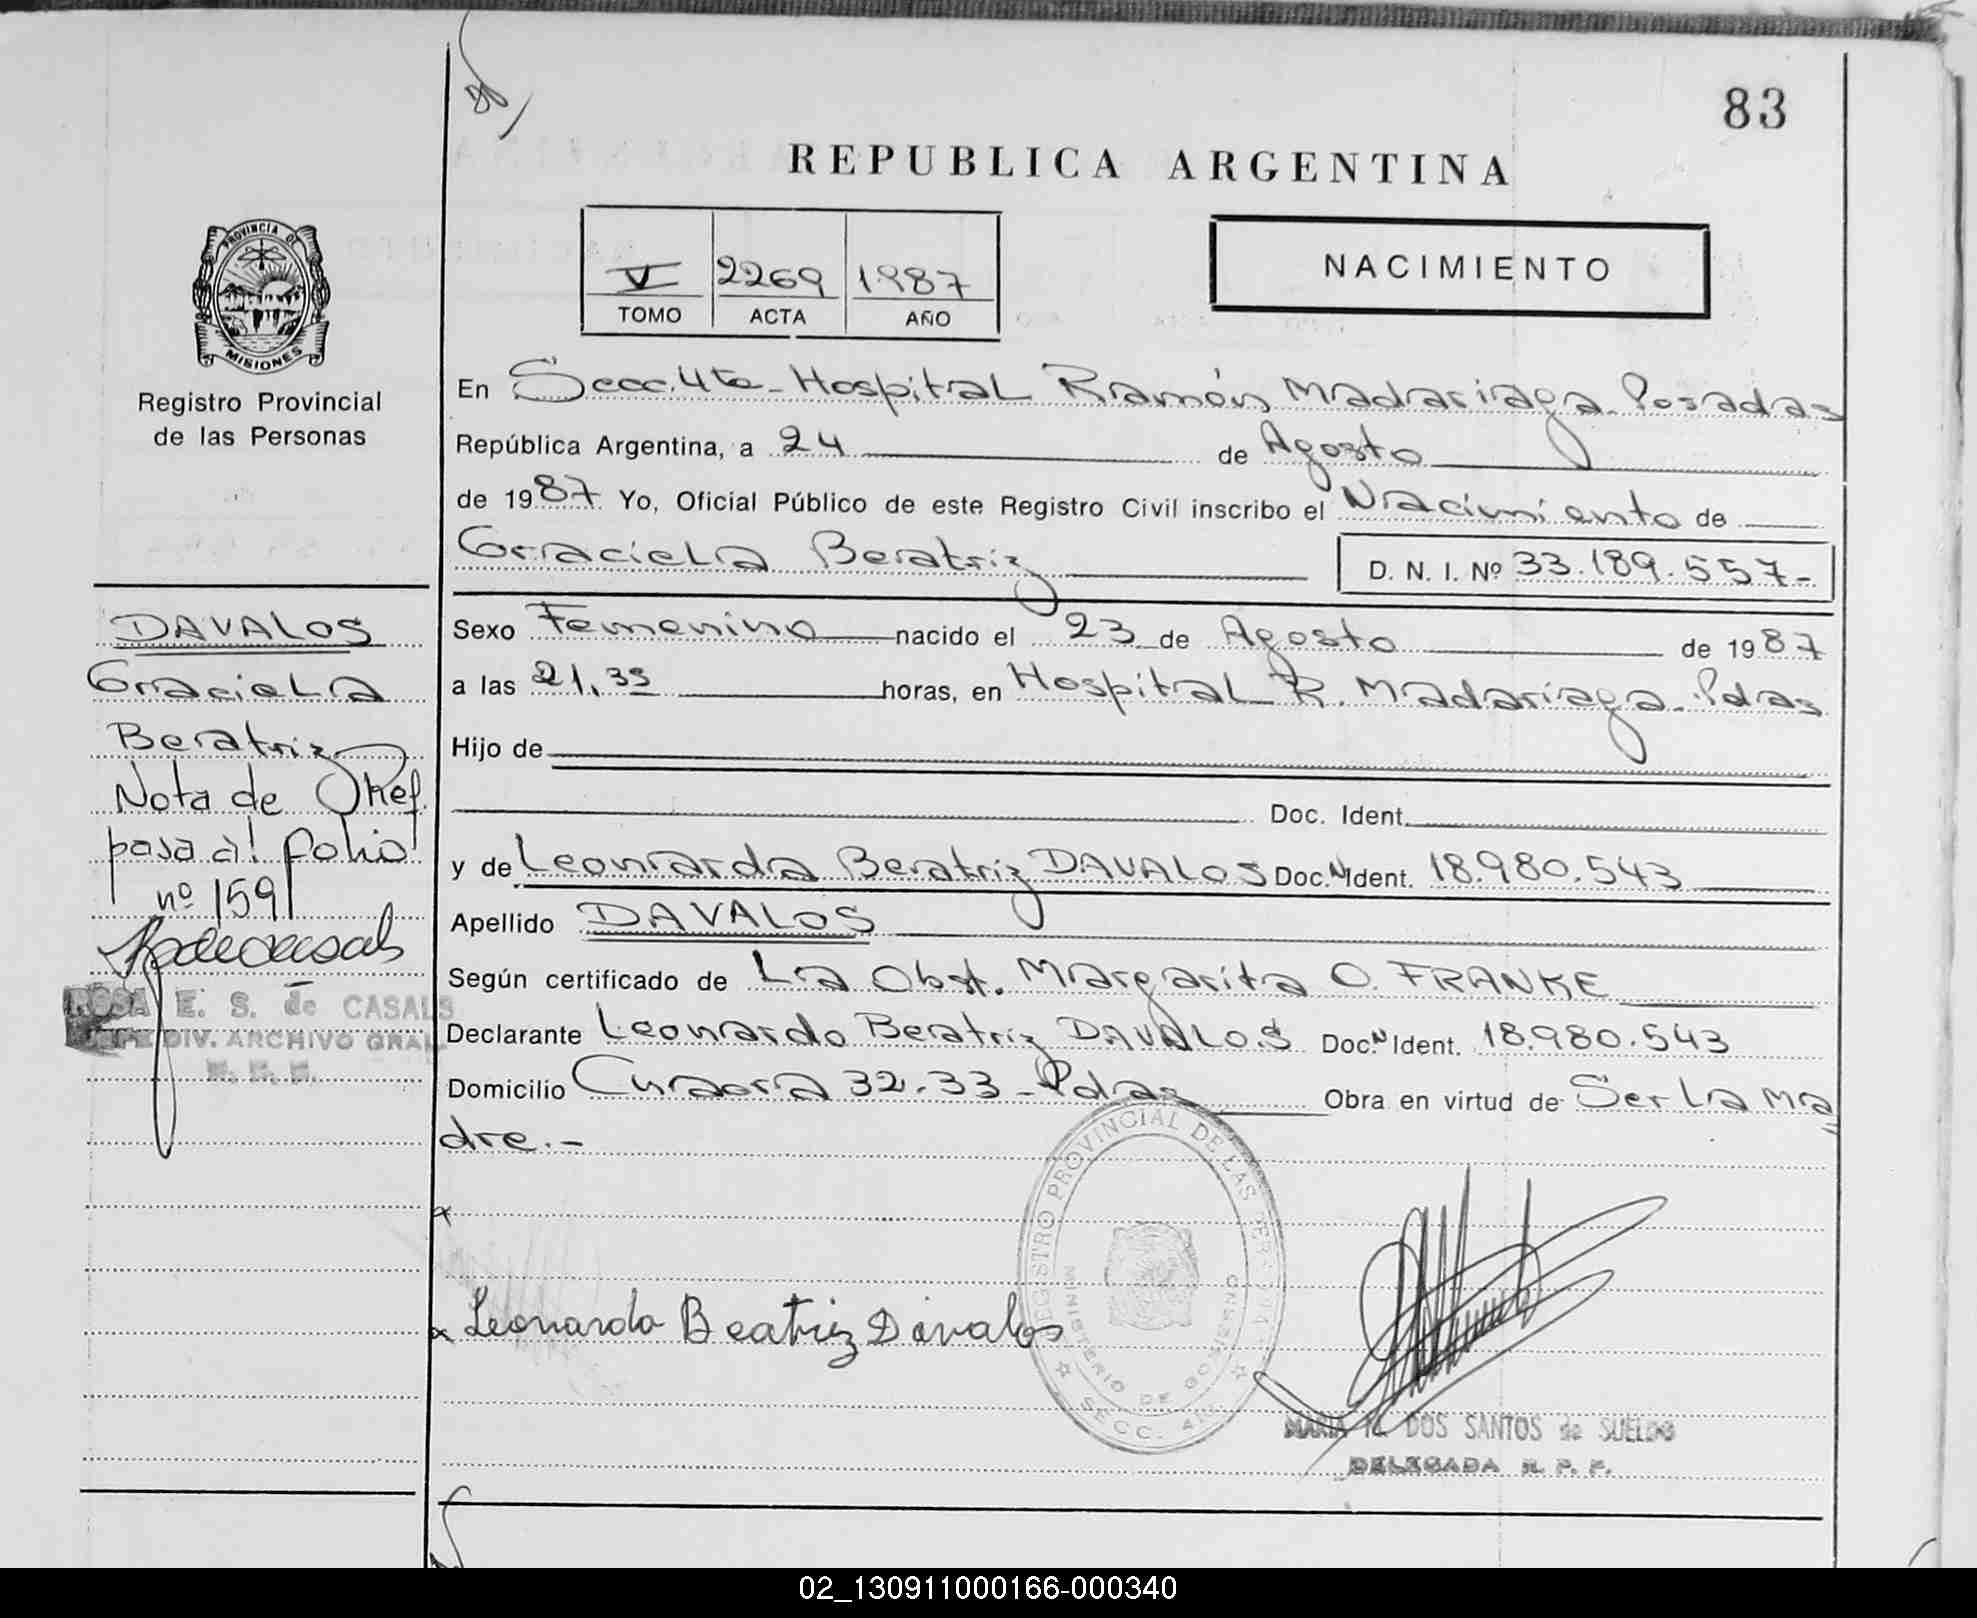 83
REPUBLICA ARGENTINA
PROVINCIA DE
MISIONES
Registro Provincial
de las Personas
V 2269 1987
TOMO ACTA AÑO
NACIMIENTO
En Secc. 4ta - Hospital Ramón Madariaga - Posadas
República Argentina, a 24 de Agosto
de 1987 Yo, Oficial Público de este Registro Civil inscribo el Nacimiento de
Graciela Beatriz D. N. I. Nº 33.189.557-
Sexo Femenino nacido el 23 de Agosto de 1987
a las 21,35 horas, en Hospital R. Madariaga - Pdas
Hijo de
Doc. Ident.
y de Leonarda Beatriz DAVALOS Doc. N Ident. 18.980.543
Apellido DAVALOS
Según certificado de La Obst. Margarita O. FRANKE
Declarante Leonardo Beatriz DAVALOS Doc. N Ident. 18.980.543
Domicilio 32-33 - Pdas Obra en virtud de Ser La Ma
dre.-
DAVALOS
Graciela
Beatriz
Nota de Ref.
pasa al folio
nº 159
ROSA E. S. de CASALS
JEFE DIV. ARCHIVO GRAL.
x
x Leonarda Beatriz Dávalos
REGISTRO PROVINCIAL DE LAS PERSONAS
MINISTERIO DE GOBIERNO
SECC. 4ta
MARIA DOS SANTOS de SUELDO
DELEGADA R. P. P.
02_130911000166-000340